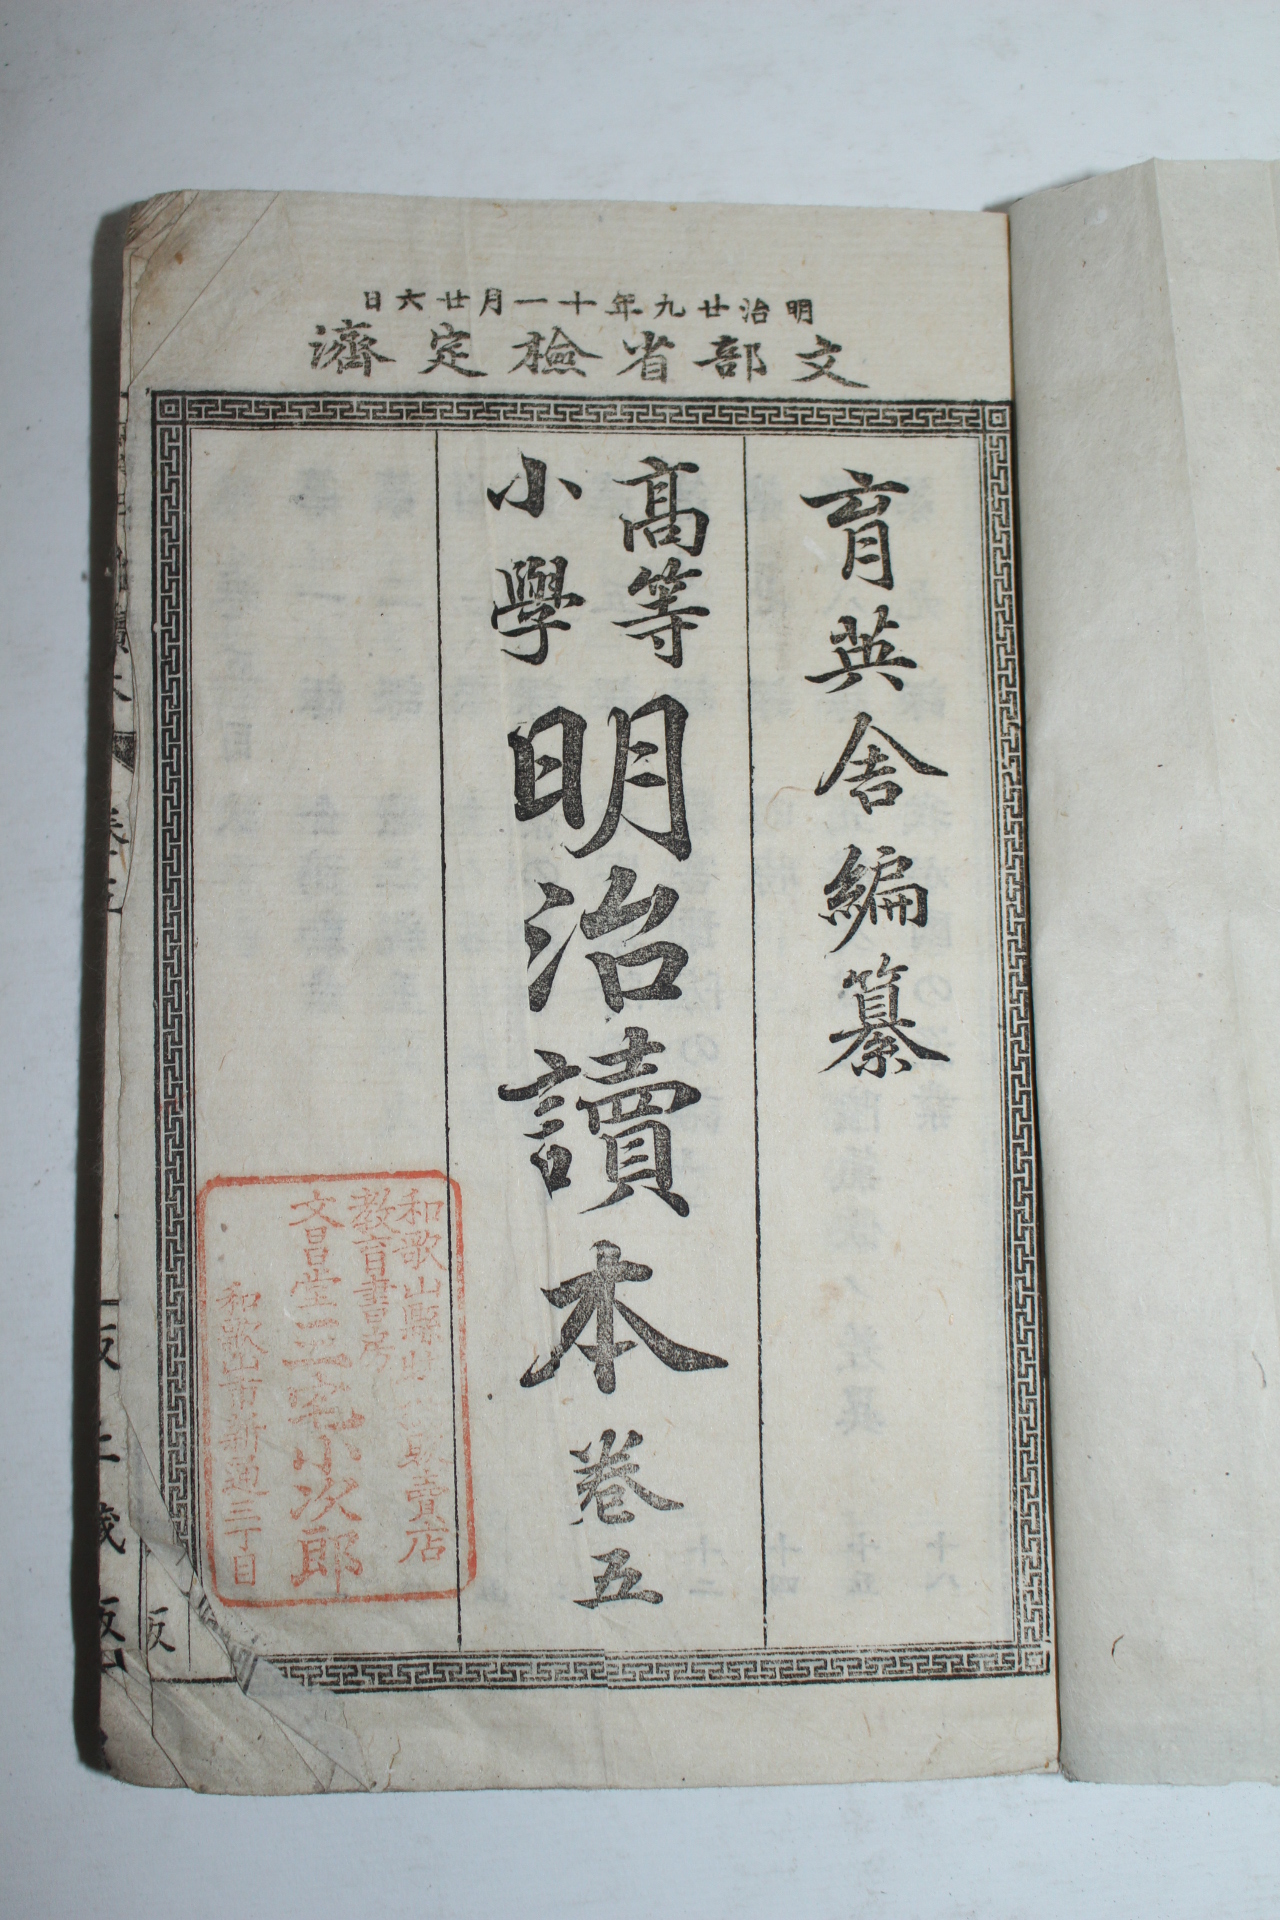 明治廿九年十一月廿六日
文部省檢定濟
育英舎編纂
高等
小學
明治讀本 卷五
和歌山縣 賣店
教育書房
文昌堂三宅小次郎
和歌山市新通三丁目